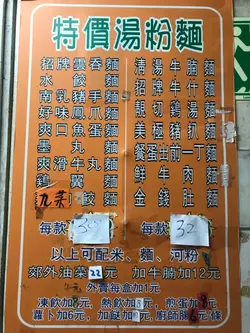 特價湯粉麵
招牌雲吞麵
水餃麵
南乳豬手麵
好味鳳爪麵
爽口魚蛋麵
墨丸麵
爽滑牛丸麵
鷄翼麵
九菜餃麵
每款
清湯牛腩麵
招牌牛什麵
親切鷄湯麵
美極豬扒麵
餐蛋出前一丁麵
鮮牛肉麵
金錢肚麵
每款32
以上可配米、麵、河粉
郊外油菜22元 加牛腩加12元
外賣每盒加1元
凍飲加 元 熱飲加 元 煎蛋加 元
蘿卜加6元 加餸加 元 廚師腸 元 條